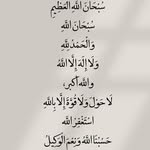 سُبْحَانَ اللهِ العَظِيمِ
سُبْحَانَ اللهِ
وَالْحَمْدُ لِلهِ
وَلَا إِلَهَ إِلَّا اللهُ
وَاللهُ أَكْبَر،
لَا حَوْلَ وَلَا قُوَّةَ إِلَّا بِاللهِ
اسْتَغْفِرُ اللهَ
حَسْبُنَا اللهُ وَنِعْمَ الْوَكِيلُ